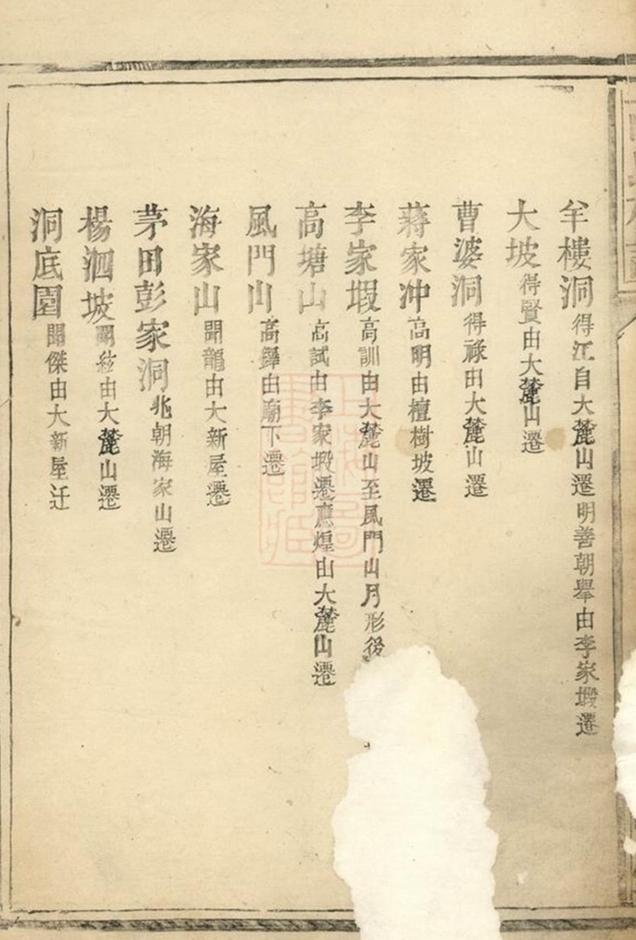 牟樓洞得江自大麓山遷明善朝舉由李家塅遷
大坡得賢由大麓山遷
曹婆洞得祿由大麓山遷
蔣家冲高明由檀樹坡遷
李家塅高訓由大麓山至風門山月形後
高塘山高試由李家塅遷應煌由大麓山遷
風門山高鐸由廟下遷
海家山開龍由大新屋遷
茅田彭家洞兆朝海家山遷
楊泗坡開絃由大麓山遷
洞底園開傑由大新屋迁